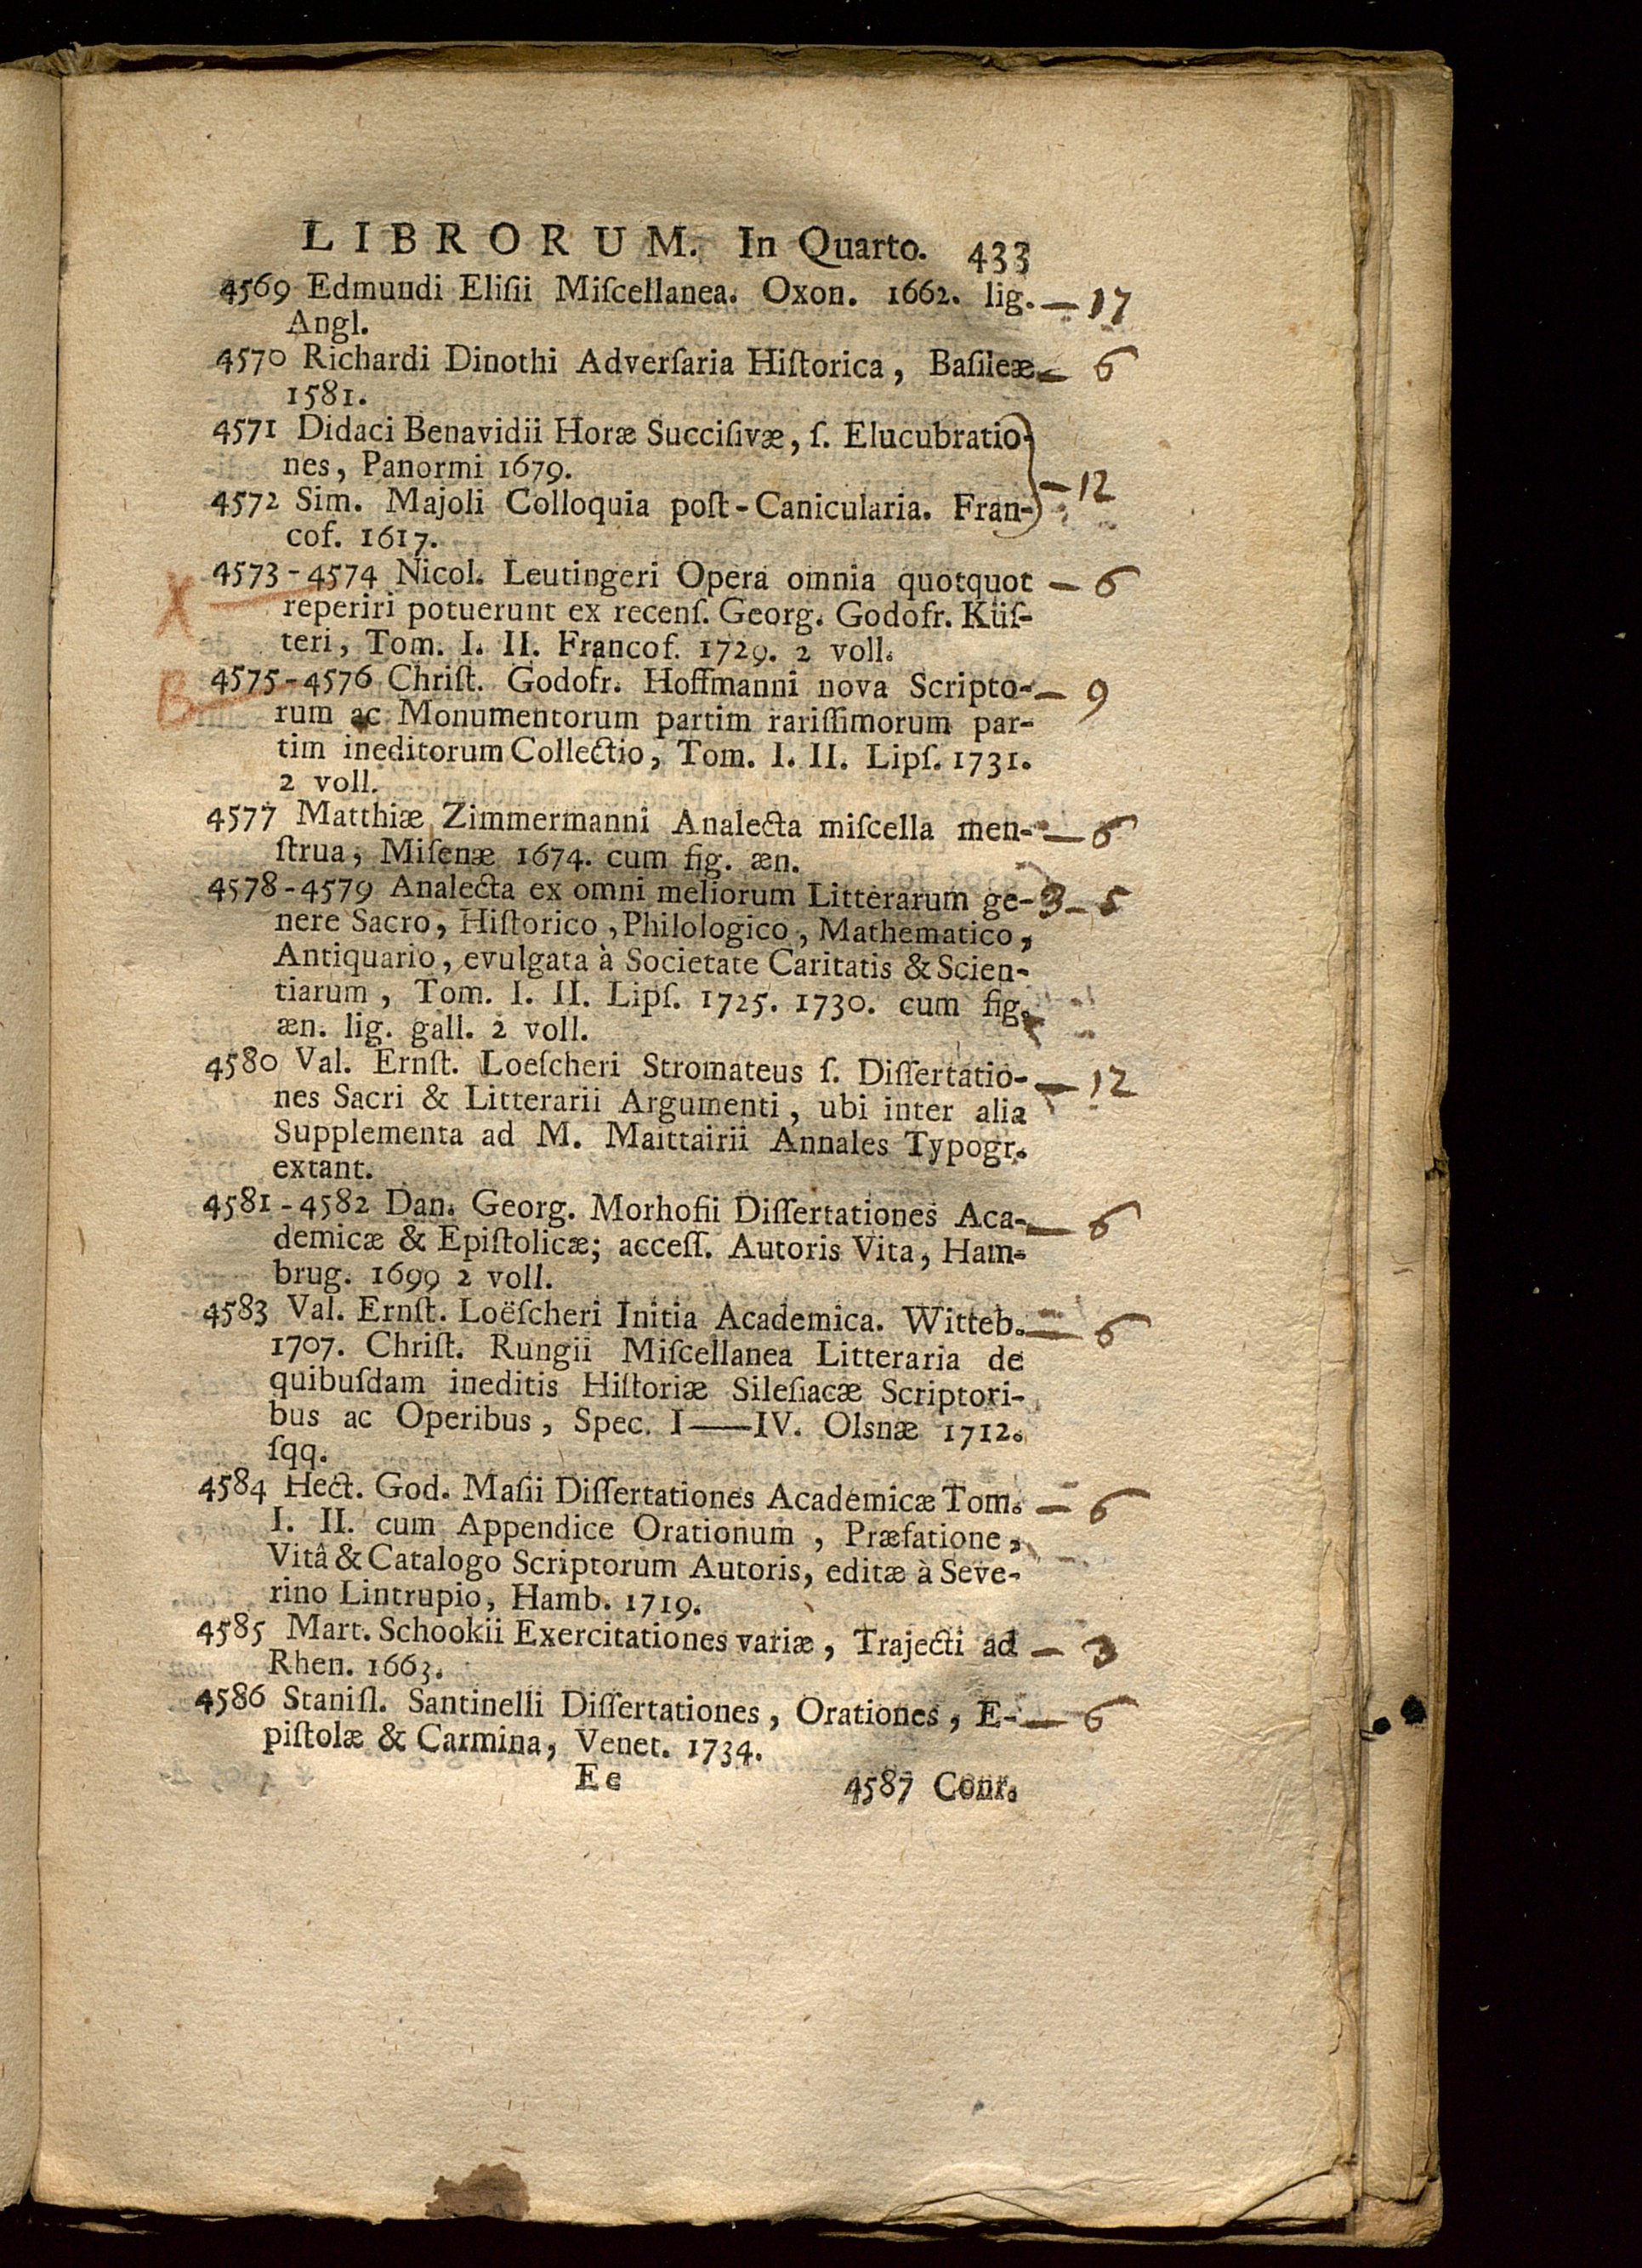 LIBRORUM. In Quarto. 433
4569 Edmundi Eliſii Miſcellanea. Oxon. 1662. lig. — 17
Angl.
4570 Richardi Dinothi Adverſaria Hiſtorica, Baſileæ — 6
1581.
4571 Didaci Benavidii Horæ Succiſivæ, ſ. Elucubratio-
nes, Panormi 1679.
— 12
4572 Sim. Majoli Colloquia poſt-Canicularia. Fran-
cof. 1617.
X 4573-4574 Nicol. Leutingeri Opera omnia quotquot — 6
reperiri potuerunt ex recenſ. Georg. Godofr. Küſ-
teri, Tom. I. II. Francof. 1729. 2 voll.
B 4575-4576 Chriſt. Godofr. Hoffmanni nova Scripto- — 9
rum ac Monumentorum partim rariſſimorum par-
tim ineditorum Collectio, Tom. I. II. Lipſ. 1731.
2 voll.
4577 Matthiæ Zimmermanni Analecta miſcella men- — 6
ſtrua, Miſenæ 1674. cum fig. æn.
4578-4579 Analecta ex omni meliorum Litterarum ge- 3 — 5
nere Sacro, Hiſtorico, Philologico, Mathematico,
Antiquario, evulgata à Societate Caritatis & Scien-
tiarum, Tom. I. II. Lipſ. 1725. 1730. cum fig.
æn. lig. gall. 2 voll.
4580 Val. Ernſt. Loeſcheri Stromateus ſ. Diſſertatio- — 12
nes Sacri & Litterarii Argumenti, ubi inter alia
Supplementa ad M. Maittairii Annales Typogr.
extant.
4581-4582 Dan. Georg. Morhofii Diſſertationes Aca- — 6
demicæ & Epiſtolicæ; acceſſ. Autoris Vita, Ham-
brug. 1699 2 voll.
4583 Val. Ernſt. Loëſcheri Initia Academica. Witteb. — 6
1707. Chriſt. Rungii Miſcellanea Litteraria de
quibuſdam ineditis Hiſtoriæ Sileſiacæ Scriptori-
bus ac Operibus, Spec. I——IV. Olsnæ 1712.
ſqq.
4584 Hect. God. Maſii Diſſertationes Academicæ Tom. — 6
I. II. cum Appendice Orationum, Præfatione,
Vitâ & Catalogo Scriptorum Autoris, editæ à Seve-
rino Lintrupio, Hamb. 1719.
4585 Mart. Schookii Exercitationes variæ, Trajecti ad — 3
Rhen. 1663.
4586 Staniſl. Santinelli Diſſertationes, Orationes, E- — 6
piſtolæ & Carmina, Venet. 1734.
Ee 4587 Conr.